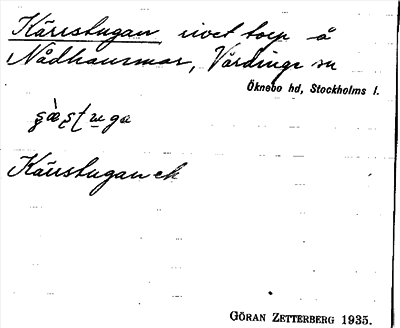 Kärrstugan rivet torp å
Nådhammar, Vårdinge sn
Öknebo hd, Stockholms l.
Kärrstugan ek
GÖRAN ZETTERBERG 1935.